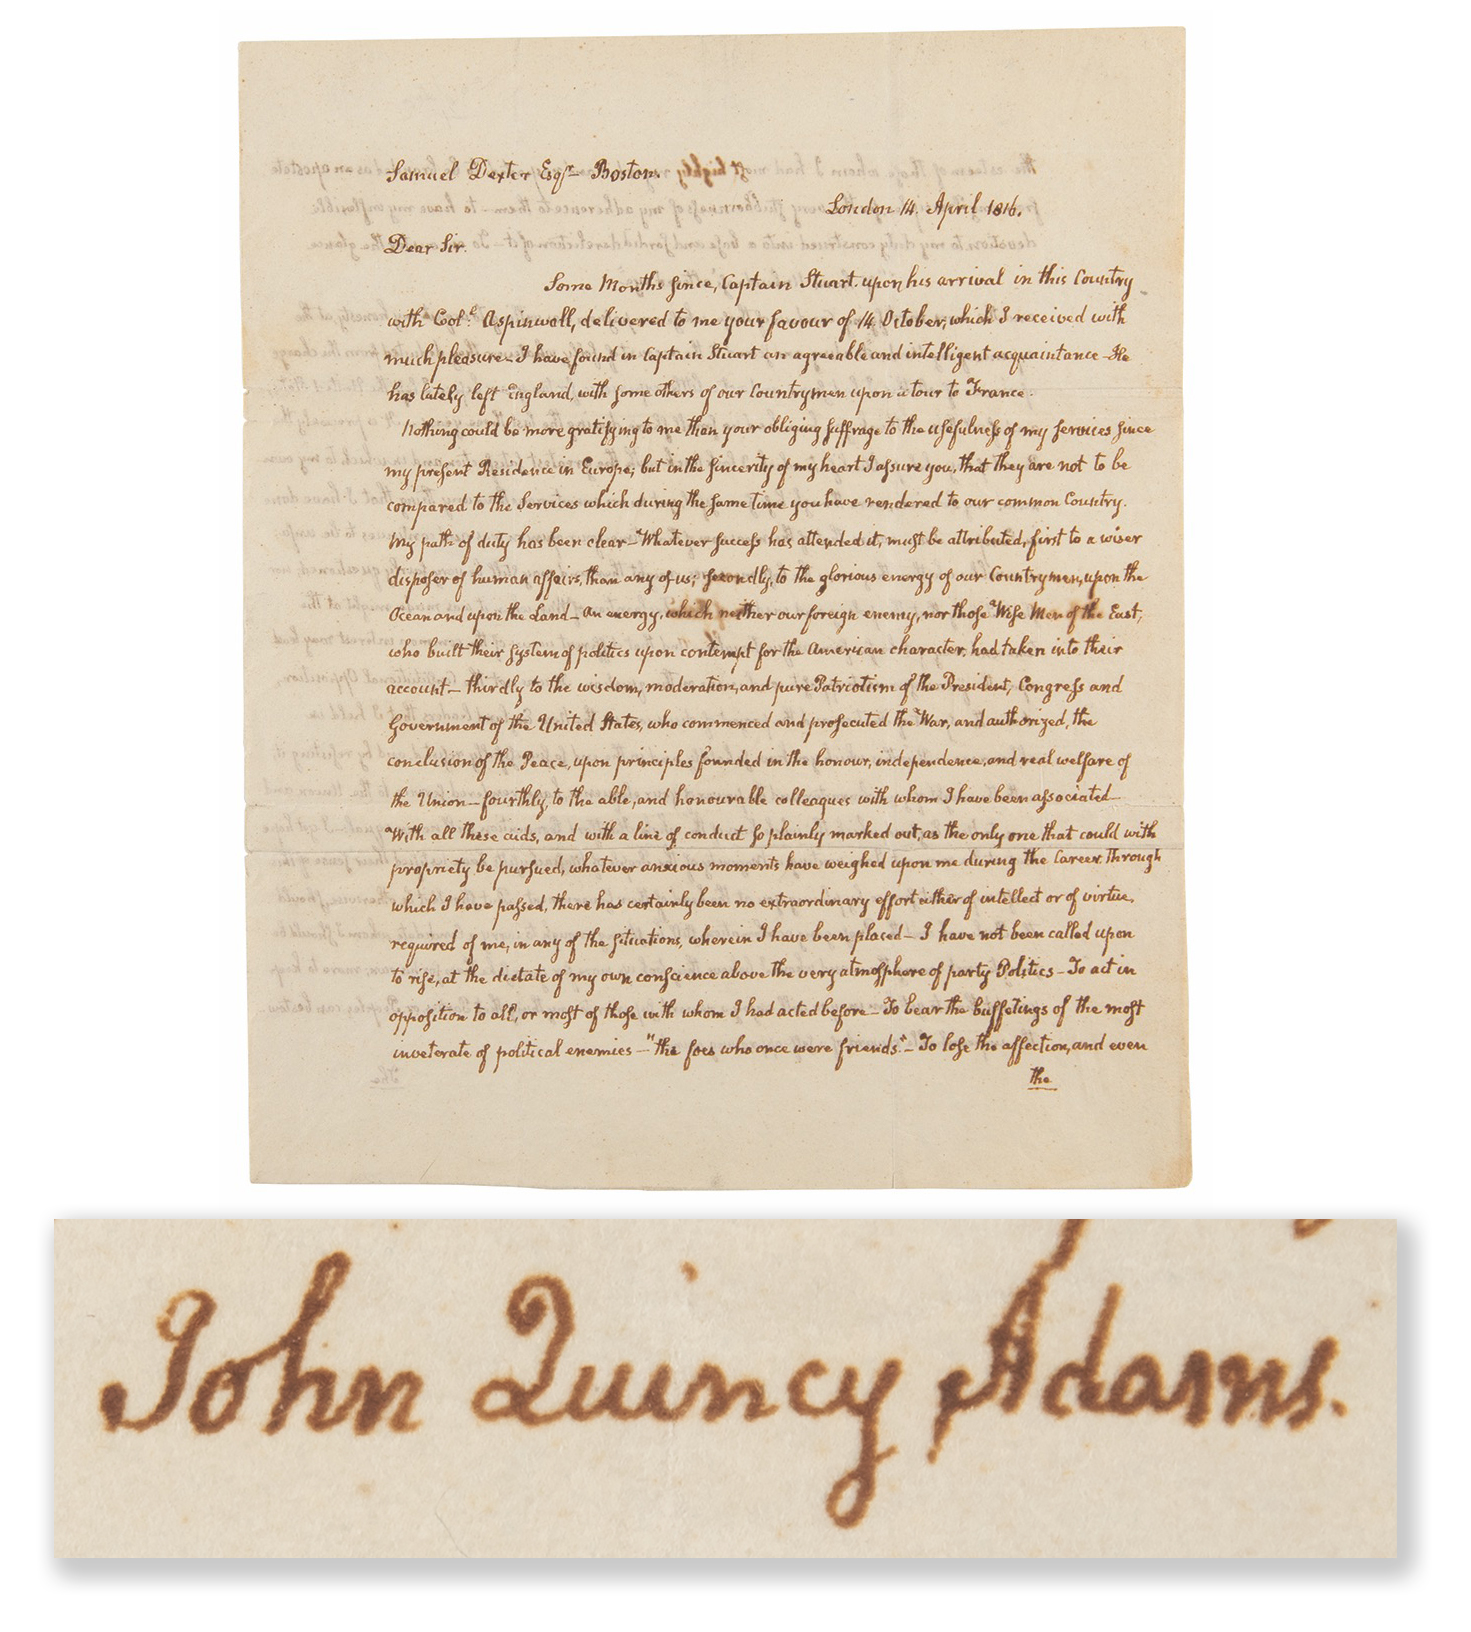 Samuel Dexter Esqr. Boston.
London 14. April 1816.
Dear Sir.
Some Months since, Captain Stuart. upon his arrival in this Country
with Coll. Aspinwall, delivered to me your favour of 14. October, which I received with
much pleasure - I have found in Captain Stuart an agreeable and intelligent acquaintance - He
has lately left England, with some others of our Countrymen upon a tour to France.
Nothing could be more gratifying to me than your obliging suffrage to the usefulness of my services since
my present Residence in Europe; but in the sincerity of my heart I assure you, that they are not to be
compared to the Services which during the same time you have rendered to our common Country.
My path of duty has been clear - Whatever success has attended it, must be attributed, first to a wiser
disposer of human affairs, than any of us; secondly, to the glorious energy of our Countrymen, upon the
Ocean and upon the Land - An energy, which neither our foreign enemy, nor those Wise Men of the East,
who built their system of politics upon contempt for the American character, had taken into their
account - thirdly to the wisdom, moderation, and pure Patriotism of the President, Congress and
Government of the United States, who commenced and prosecuted the War, and authorized, the
conclusion of the Peace, upon principles founded in the honour, independence, and real welfare of
the Union - fourthly, to the able, and honourable colleagues with whom I have been associated -
With all these aids, and with a line of conduct so plainly marked out, as the only one that could with
propriety be pursued, whatever anxious moments have weighed upon me during the Career, through
which I have passed, there has certainly been no extraordinary effort either of intellect or of virtue,
required of me, in any of the situations, wherein I have been placed - I have not been called upon
to rise, at the dictate of my own conscience above the very atmosphere of party Politics - To act in
opposition to all, or most of those with whom I had acted before - To bear the buffetings of the most
inveterate of political enemies - "the foes who once were friends." - To lose the affection, and even
the
John Quincy Adams.